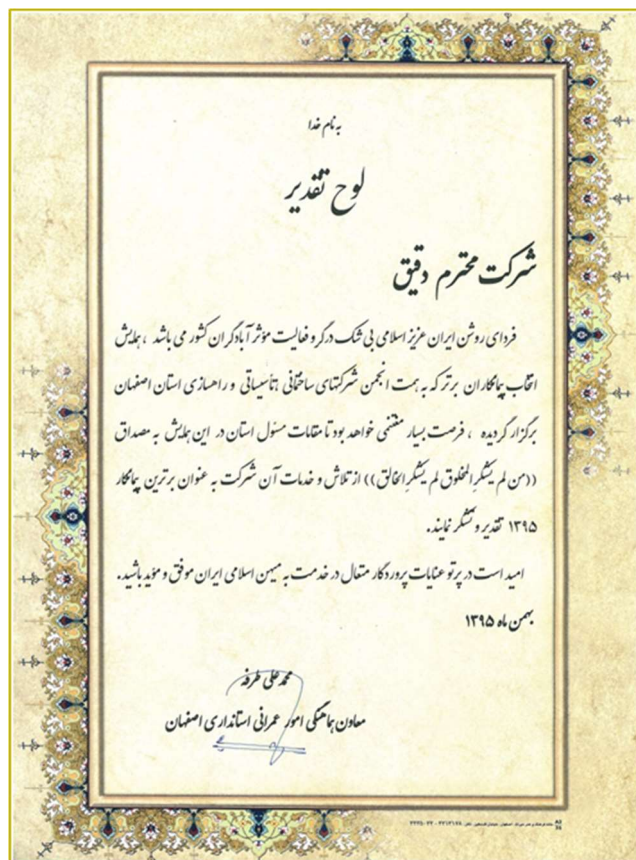 به نام خدا
لوح تقدیر
شرکت محترم دقیق
فردای روشن ایران عزیز اسلامی بی شک درگرو فعالیت مؤثر آبادگران کشور می باشد ، همایش
انتخاب پیمانکاران برتر که به همت انجمن شرکتهای ساختمانی ،تأسیساتی و راهسازی استان اصفهان
برگزار گردیده ، فرصت بسیار مغتنمی خواهد بود تا مقامات مسئول استان در این همایش به مصداق
((من لم یشکر المخلوق لم یشکر الخالق)) از تلاش و خدمات آن شرکت به عنوان برترین پیمانکار
۱۳۹۵ تقدیر و تشکر نمایند.
امید است در پرتو عنایات پروردگار متعال در خدمت به میهن اسلامی ایران موفق و مؤید باشید.
بهمن ماه ۱۳۹۵
محمد علی طرفه
معاون هماهنگی امور عمرانی استانداری اصفهان